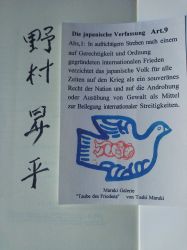 野村昇平
Die japanische Verfassung Art.9
Abs.1: In aufrichtigem Streben nach einem
auf Gerechtigkeit und Ordnung
gegründeten internationalen Frieden
verzichtet das japanische Volk für alle
Zeiten auf den Krieg als ein souveränes
Recht der Nation und auf die Androhung
oder Ausübung von Gewalt als Mittel
zur Beilegung internationaler Streitigkeiten.
Maruki Galerie
"Taube des Friedens" von Toshi Maruki